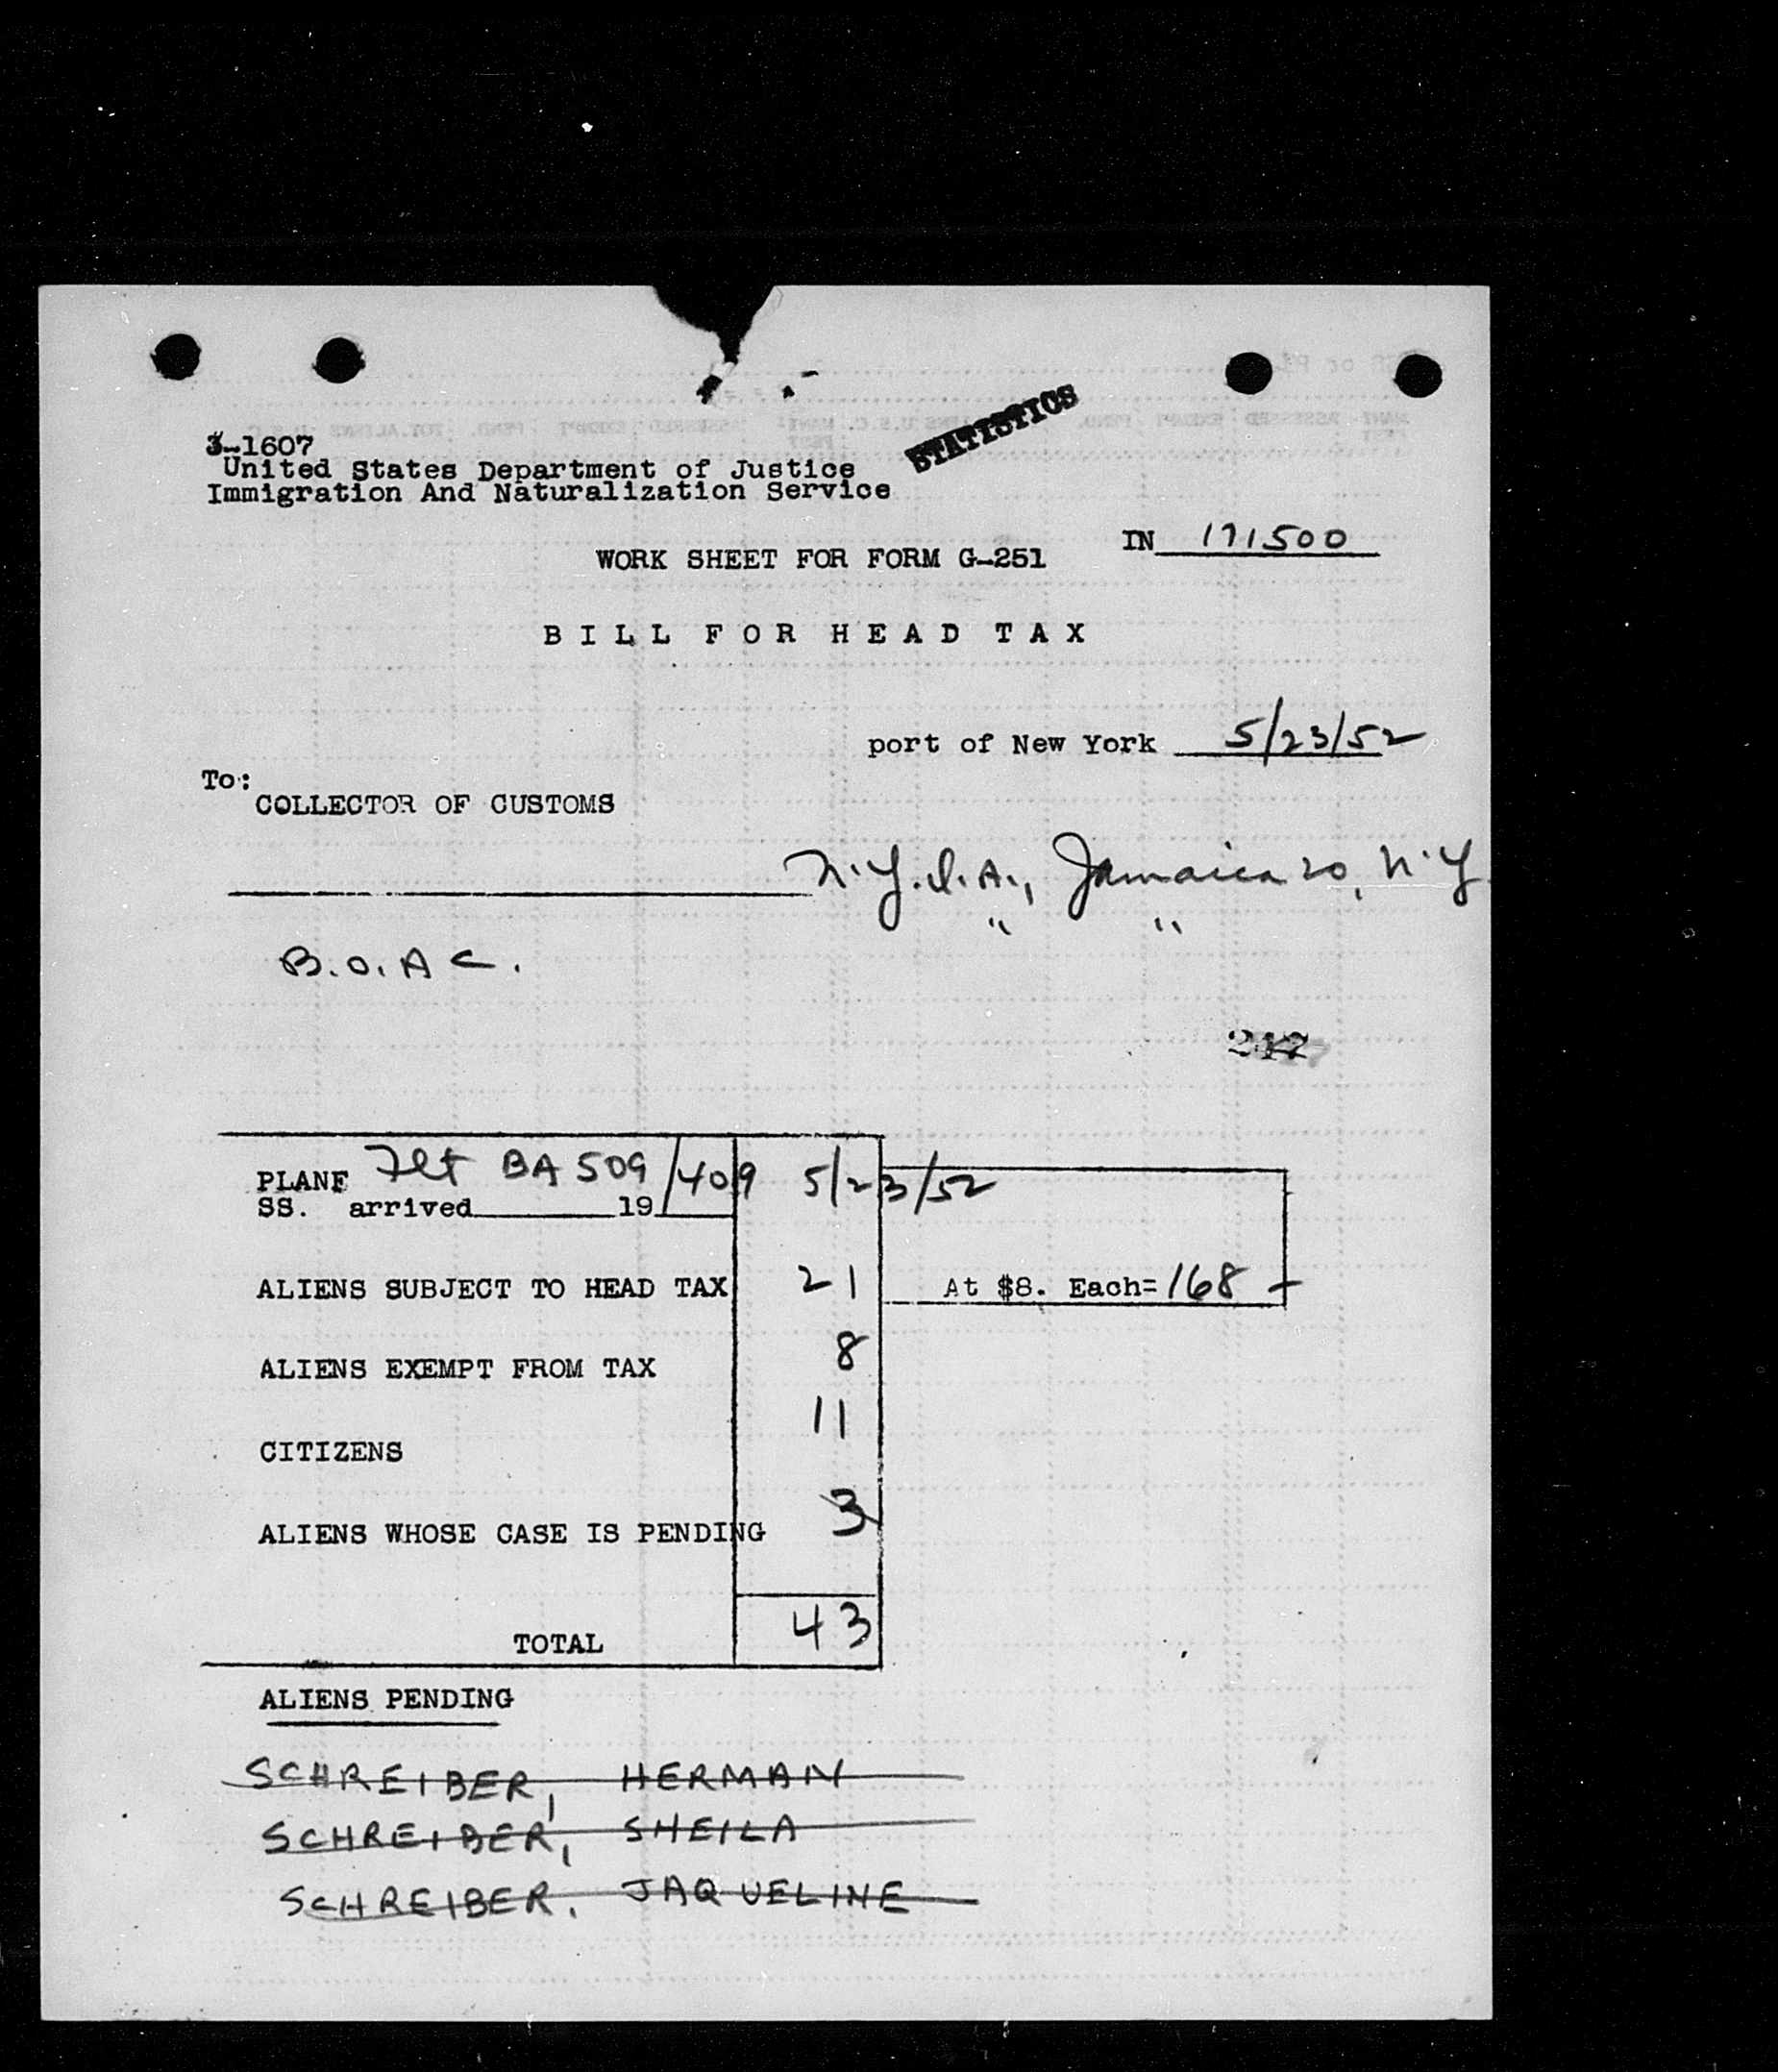 STATISTICS
3-1607
United States Department of Justice
Immigration And Naturalization Service
IN 171500
WORK SHEET FOR FORM G-251
BILL FOR HEAD TAX
port of New York 5/23/52
To:
COLLECTOR OF CUSTOMS
N.Y.I.A., Jamaica 20, N.Y.
" "
B.O.A C.
PLANE Flt BA 509/409 5/23/52
SS. arrived 19
ALIENS SUBJECT TO HEAD TAX 21 At $8. Each= 168
ALIENS EXEMPT FROM TAX 8
CITIZENS 11
ALIENS WHOSE CASE IS PENDING 3
TOTAL 43
ALIENS PENDING
SCHREIBER, HERMAN
SCHREIBER, SHEILA
SCHREIBER, JAQUELINE